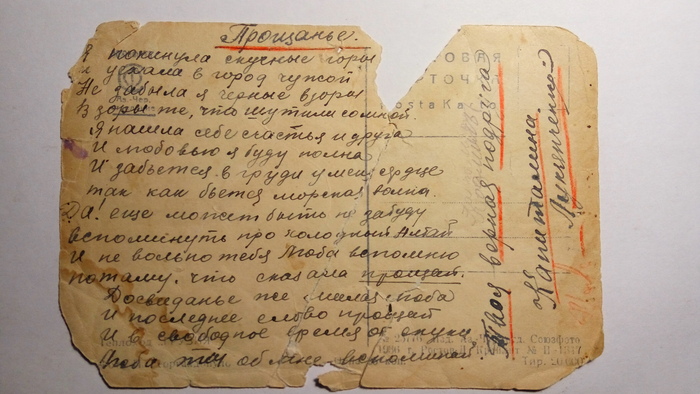 Прощанье.
Я покинула скучные горы
и уехала в город чужой
Не забыла я черные взоры
Взоры те, что шутили со мной.
Я нашла себе счастья и друга
И любовью я буду полна
И забьется в груди у меня сердце
так как бьется морская волна.
Да! еще может быть не забуду
вспомянуть про холодный Алтай
И не вольно тебя Люба вспомню
потаму, что сказала прощай.
Досвиданье же милая Люба
И последнее слово прощай
И за свободное время от скуки
Люба ты обо мне вспоминай
Твоя верная подруга
Капиталина.
ТОЧ
osta Ka
Союзфото